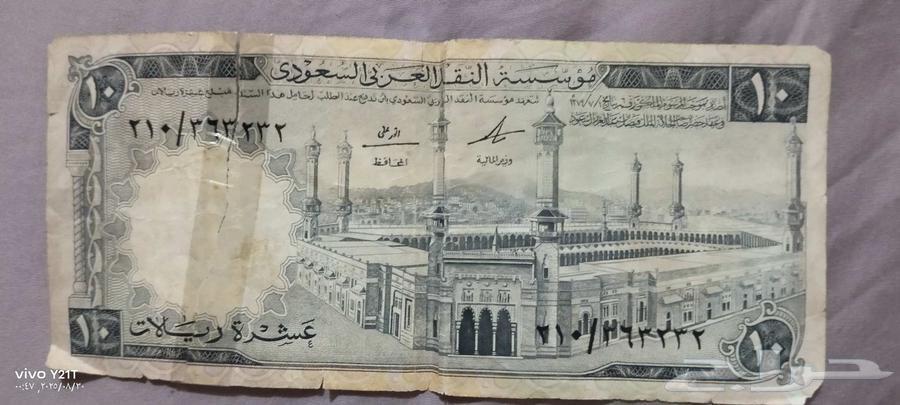 مؤسسة النقد العربي السعودي
١٠
١٠
تتعهد مؤسسة النقد العربي السعودي بان تدفع عند الطلب لحامل هذا السند مبلغ عشرة ريالات
٢١٠/٣٦٣٢٣٢
انور علي
المحافظ
وزير المالية
عشرة ريالات
٢١٠/٣٦٣٢٣٢
١٠
١٠
حراج
vivo Y21T
٢٠٢٥/٠٨/٢٠, ٠٠:٤٧